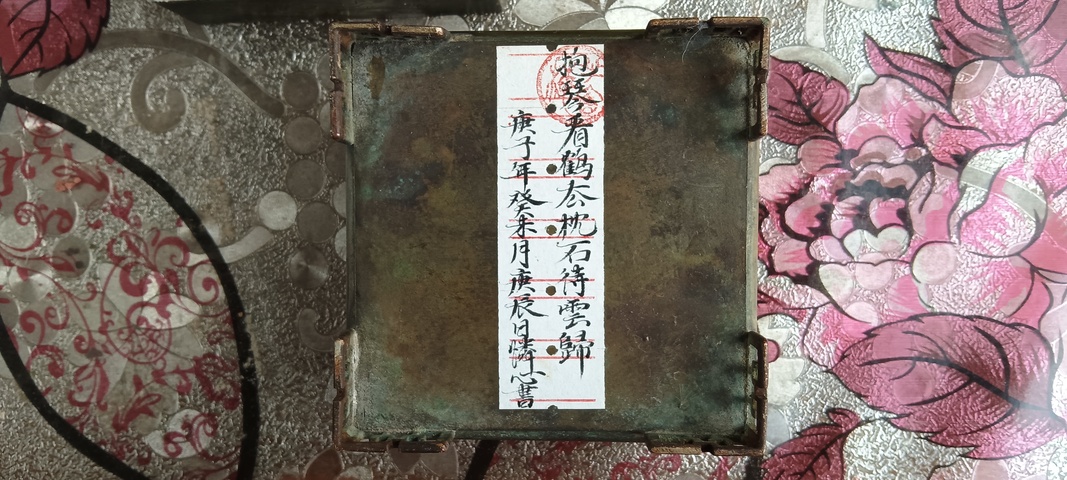 抱琴看鹤去枕石待雲歸
庚子年癸未月庚辰日憐心書